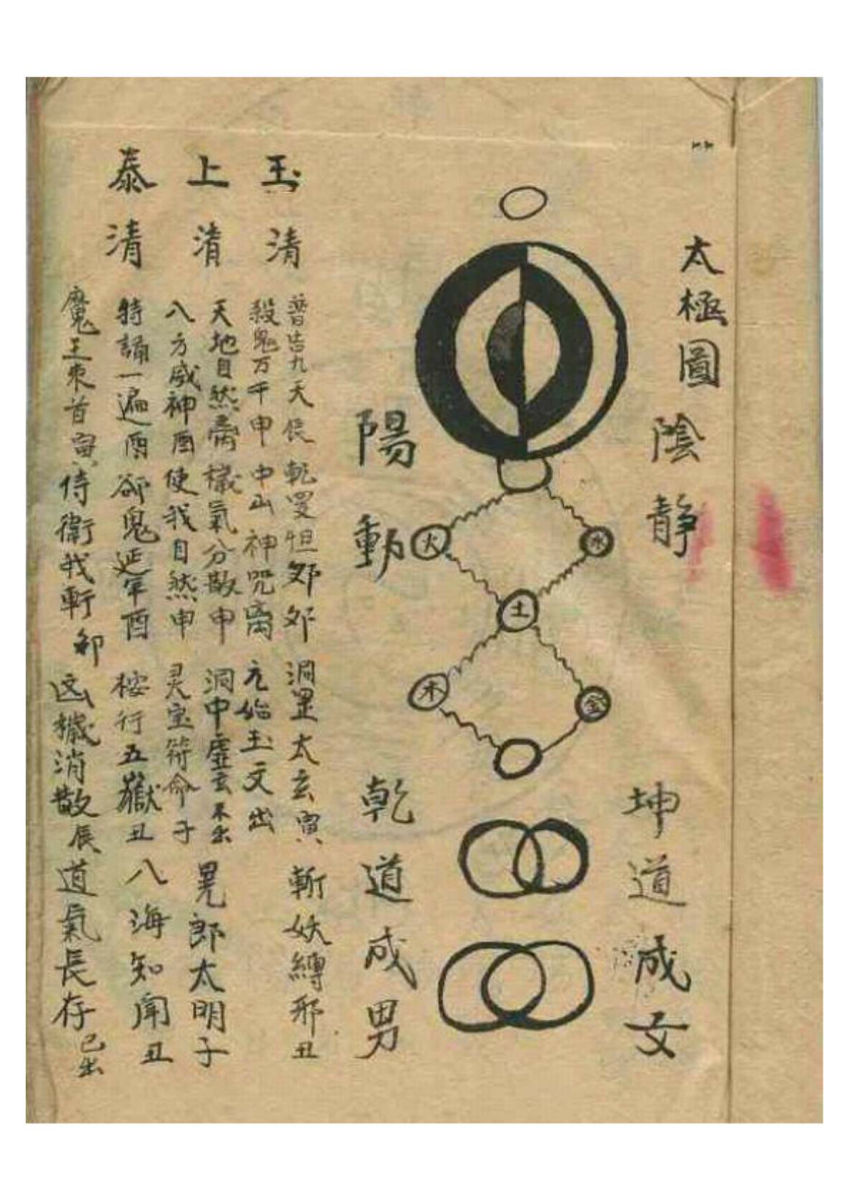 太極圖
陰靜
坤道成女
水
火
土
木
金
陽動
乾道成男
玉清
上清
泰清
普告九天 乾羅怛 洞罡太玄寅 斬妖縛邪丑
殺鬼万千申 中山神咒 元始玉文出
天地自然 穢氣分散申 洞中虛玄 晃郎太明子
八方威神酉 使我自然申 灵宝符命子
特誦一遍酉 卻鬼延年酉 桉行五嶽丑 八海知聞丑
魔王束首寅 侍衛我軒卯 凶穢消散辰 道氣長存